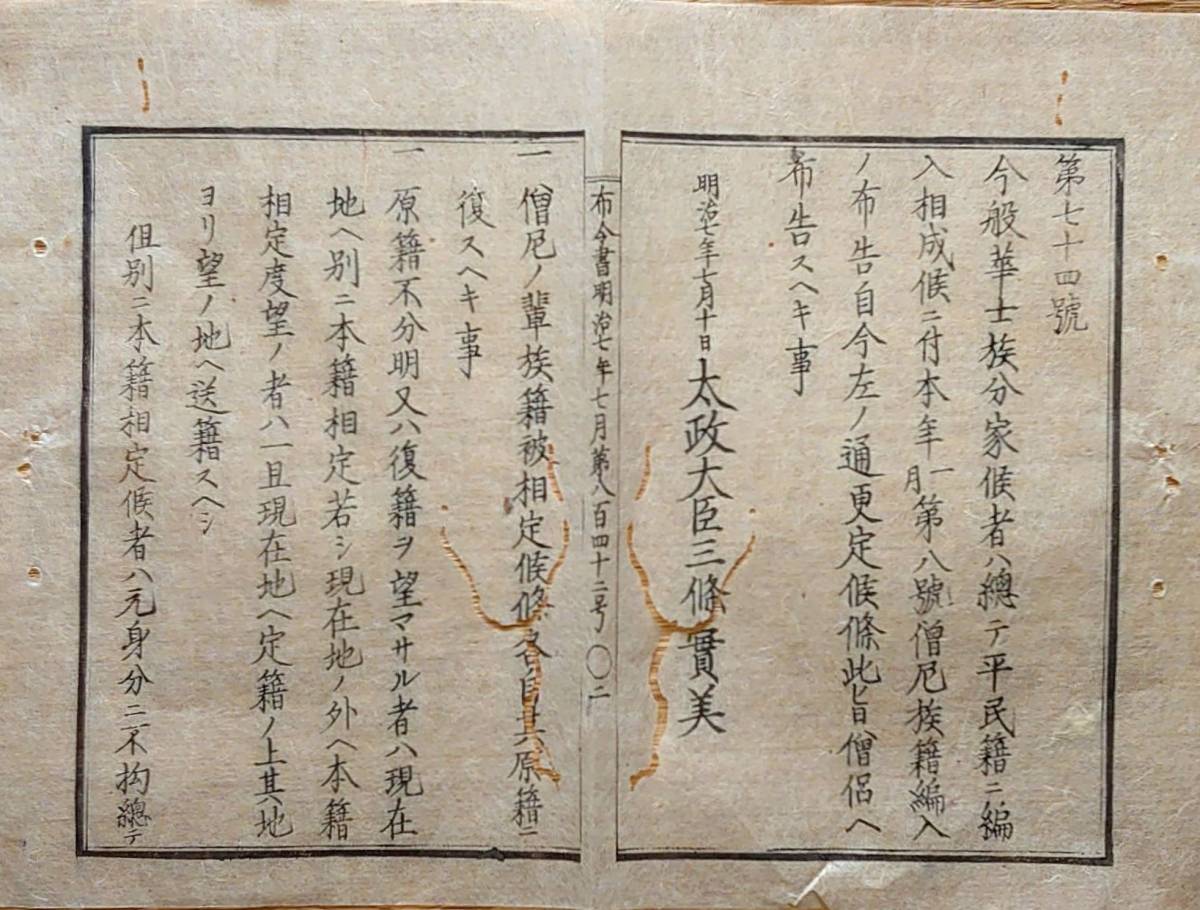 第七十四號
今般華士族分家候者ハ總テ平民籍ニ編
入相成候ニ付本年一月第八號僧尼族籍編入
ノ布告自今左ノ通更定候條此旨僧侶ヘ
布告スヘキ事
明治七年七月十日 太政大臣三條實美
布令書明治七年七月第八百四十二号〇二
一 僧尼ノ輩族籍被相定候條各自其原籍ニ
復スヘキ事
一 原籍不分明又ハ復籍ヲ望マサル者ハ現在
地ヘ別ニ本籍相定若シ現在地ノ外ヘ本籍
相定度望ノ者ハ一且現在地ヘ定籍ノ上其地
ヨリ望ノ地ヘ送籍スヘシ
但別ニ本籍相定候者ハ元身分ニ不拘總テ